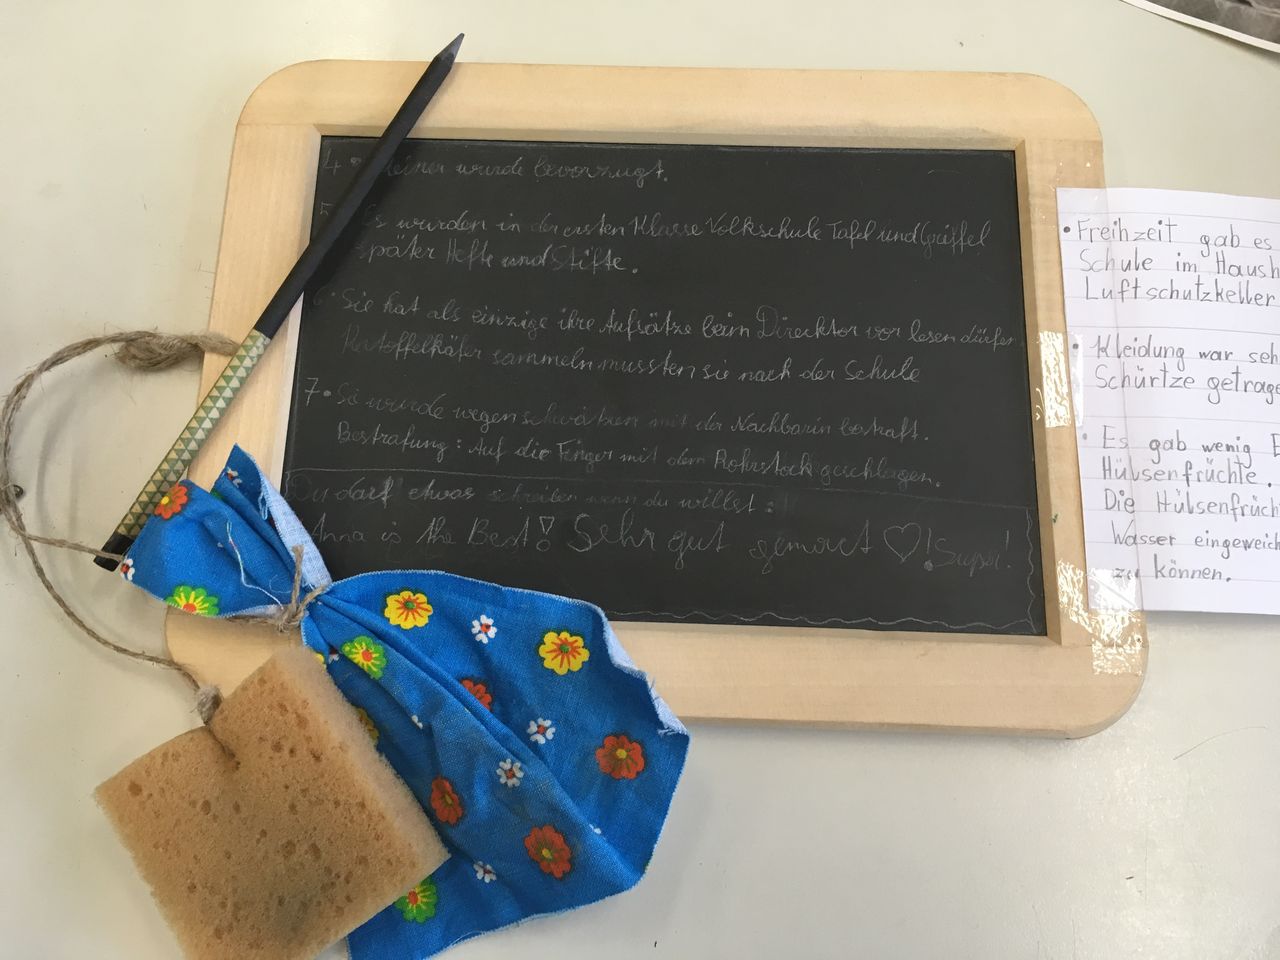 4. Keiner wurde bevorzugt.
5. Es wurden in der ersten Klasse Volkschule Tafel und Griffel
später Hefte und Stifte.
6. Sie hat als einzige ihre Aufsätze beim Direcktor vor lesen dürfen
Kartoffelkäfer sammeln mussten sie nach der Schule
7. Sie wurde wegen schwätzen mit der Nachbarin bestraft.
Bestrafung: Auf die Finger mit dem Rohrstock geschlagen.
Du darf etwas schreiben wenn du willst:
Anna is the Best! Sehr gut gemact ♡! Super!
• Freihzeit gab es
Schule im Haush
Luftschutzkeller
• Kleidung war seh
Schürtze getrage
• Es gab wenig E
Hülsenfrüchte.
Die Hülsenfrüch
Wasser eingeweich
zu können.